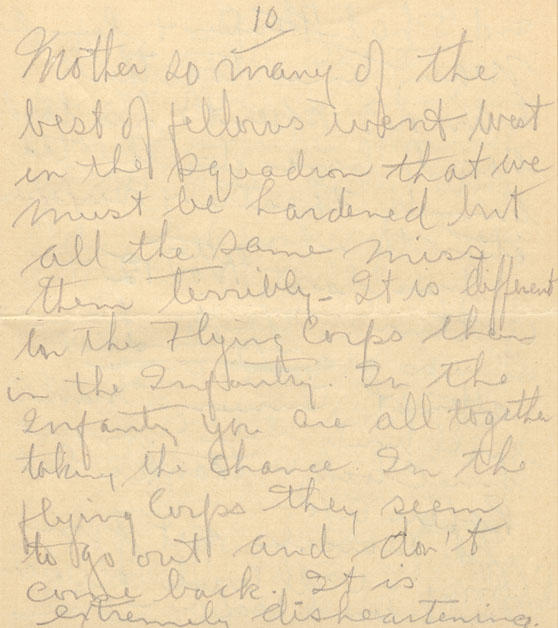 10
Mother so many of the
best of fellows went West
in the squadron that we
must be hardened but
all the same miss
them terribly - It is different
in the Flying Corps than
in the Infantry. In the
Infantry you are all together
taking the chance In the
flying Corps they seem
to go out and don't
come back. It is
extremely disheartening.